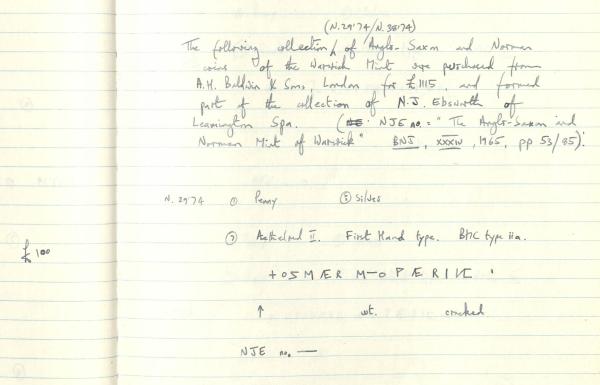 (N.29'74/N.38'74)
The following collection, of Anglo-Saxon and Norman
coins of the Warwick Mint were purchased from
A.H. Baldwin & Sons, London for £1115, and formed
part of the collection of N.J. Ebsworth of
Leamington Spa. ( NJE no. = "The Anglo-Saxon and
Norman Mint of Warwick" BNJ, XXXIV, 1965, pp 53/85).
N. 29'74 ① Penny ⑤ Silver
⑦ Aethelred II. First Hand type. BMC type iia.
£100
+OSMÆR M-O PÆRIИC
↑ wt. cracked
NJE no. —